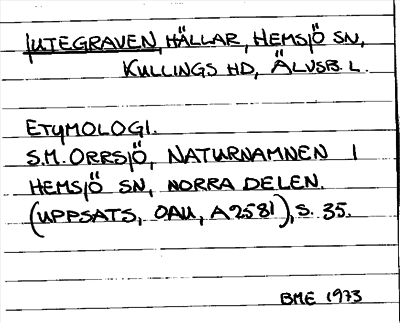 JUTEGRAVEN, HÄLLAR, HEMSJÖ SN,
KULLINGS HD, ÄLVSB. L.
ETYMOLOGI.
S.M. ORRSJÖ, NATURNAMNEN I
HEMSJÖ SN, NORRA DELEN.
(UPPSATS, OAU, A2581), S. 35.
BME 1973